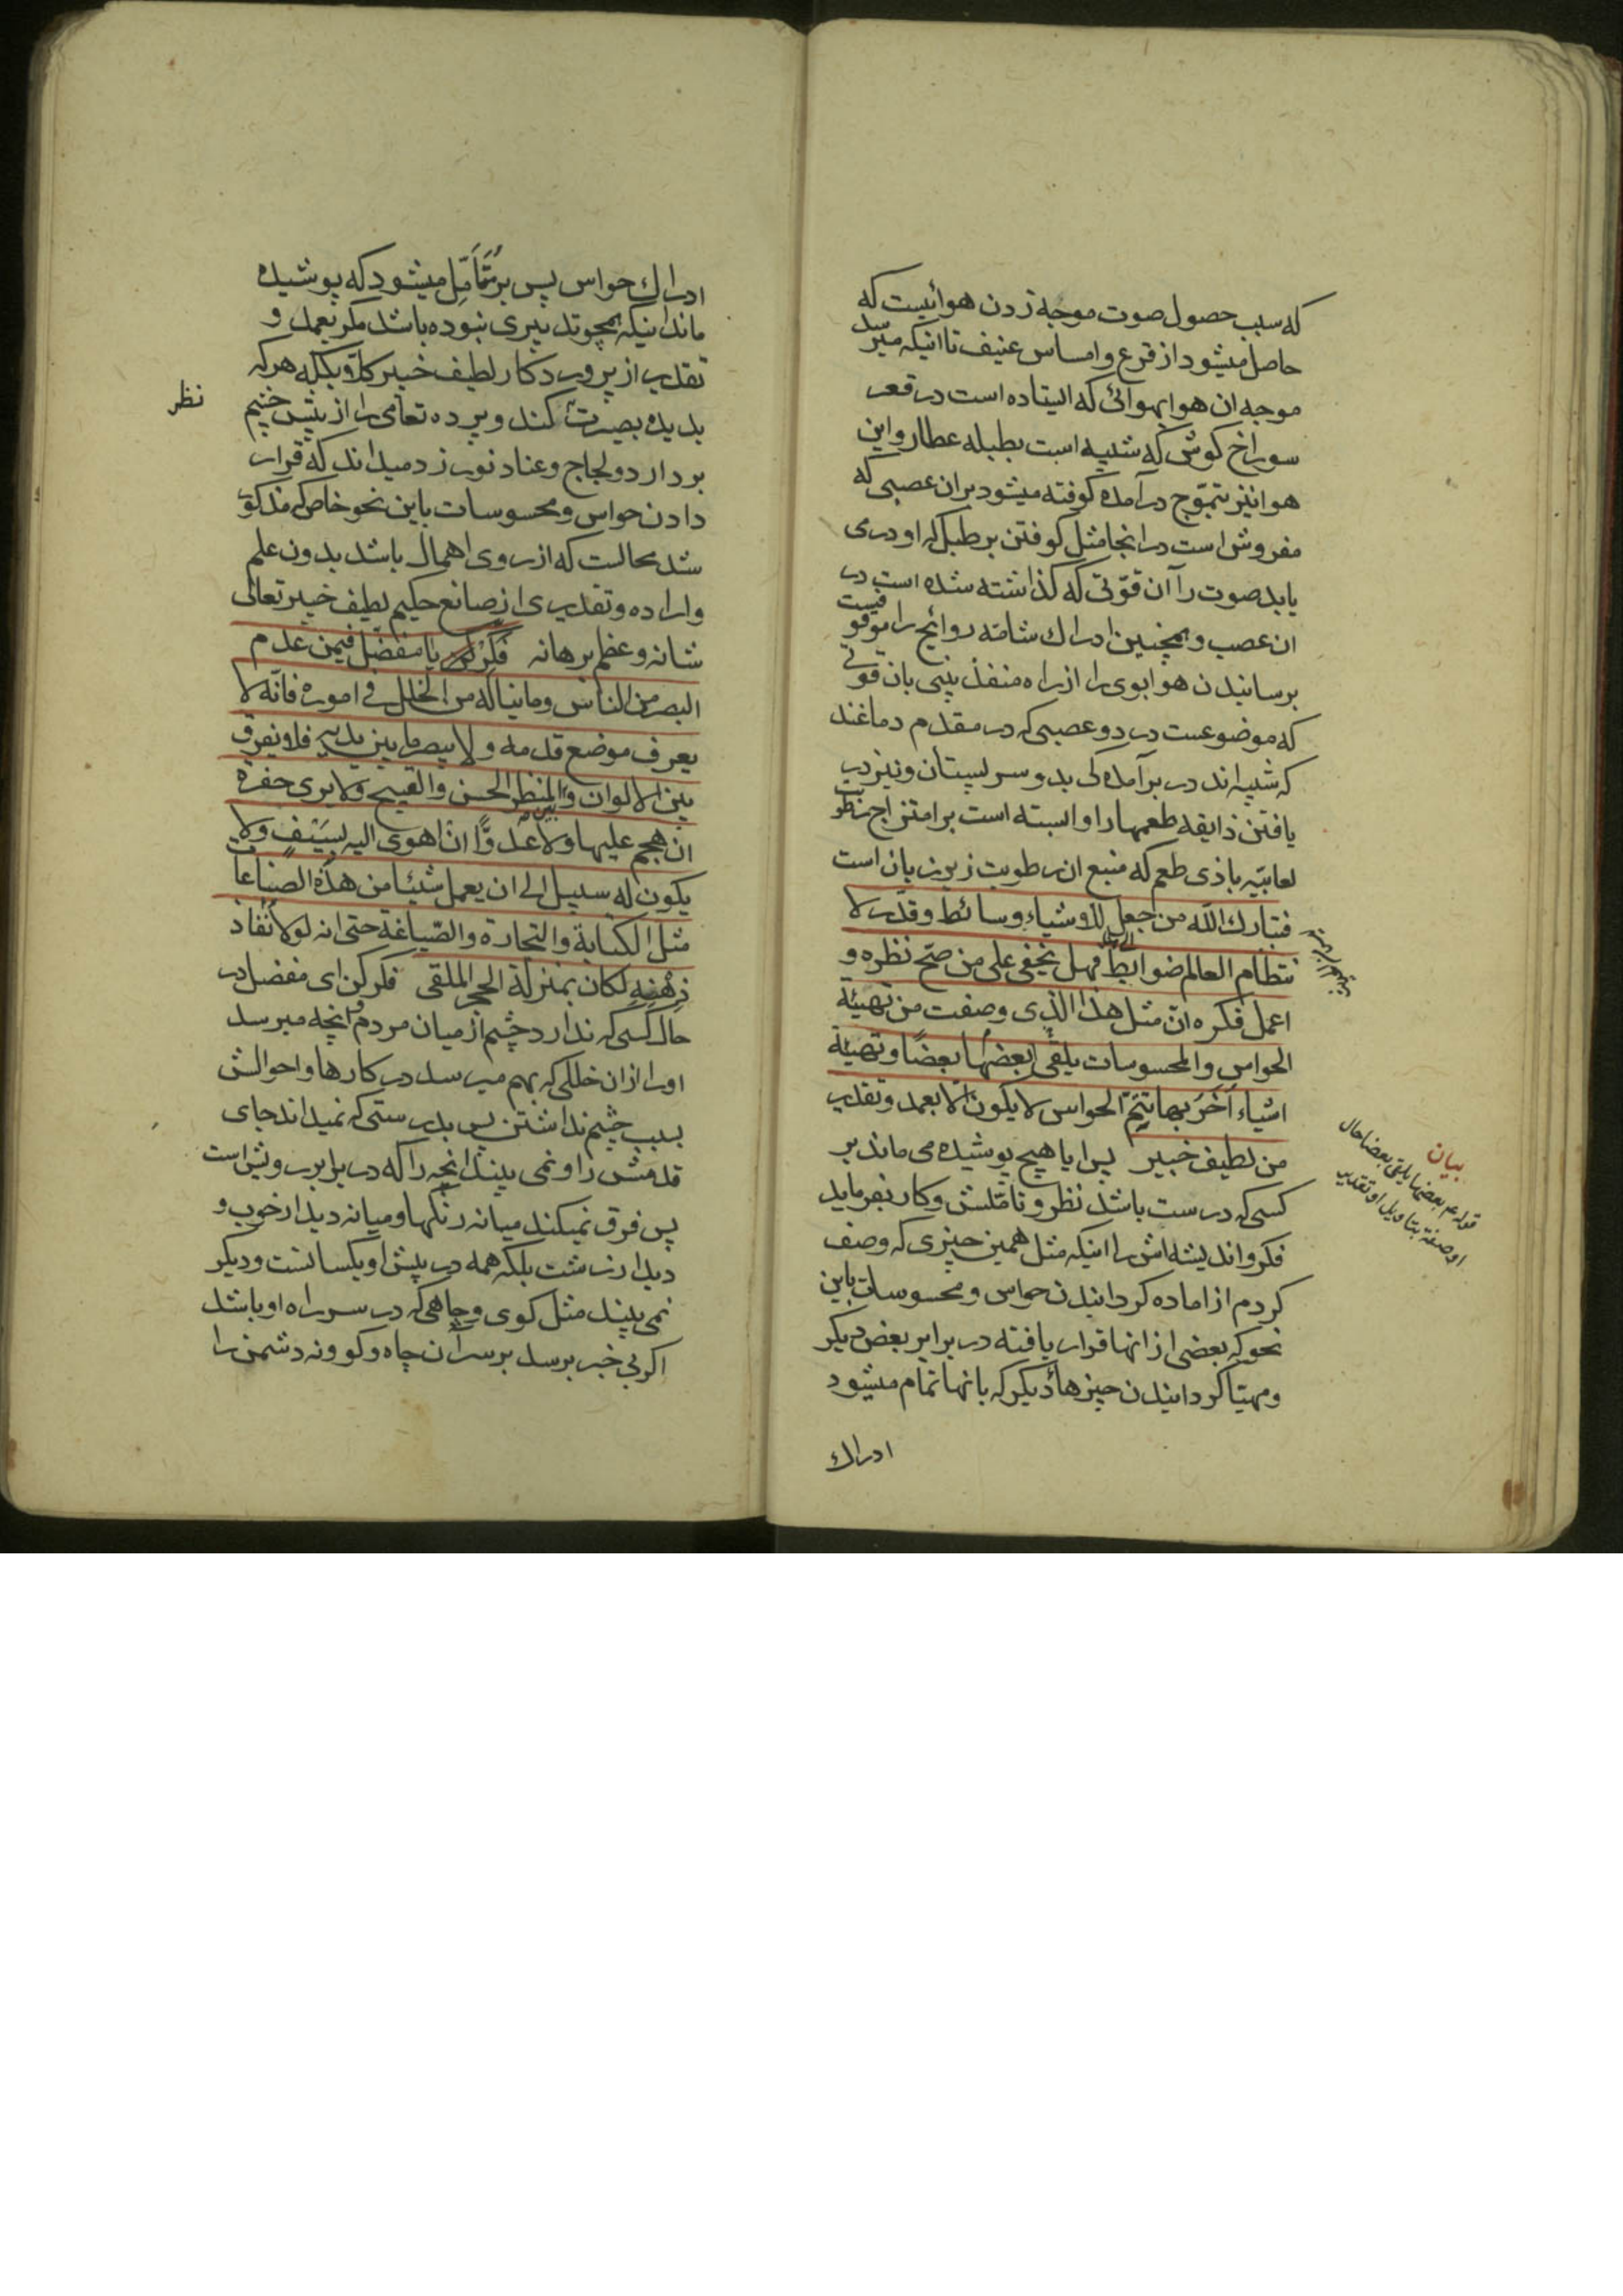 که سبب حصول صوت موجه زدن هوائیست که
حاصل میشود از قرع و امساس عنیف تا انیکه میرسد
موجه ان هوا بهوائی که ایستاده است در قعر
سوراخ کوش که شبیه است بطبله عطار و این
هوا نیز بتموّج درآمده کوفته میشود بران عصبی که
مفروش است در انجا مثل کوفتن بر طبل که او درمی
یابد صوت را آن قوّتی که کذاشته شده است در
ان عصب و همچنین ادراك شامّه روائح را موقوفیست
برسانیدن هوا بوی را از راه منفذ بینی بان قوتی
که موضوعست در دو عصبی که در مقدم دماغند
که شبیه اند در برآمدکی بدو سر پستان و نیز در
یافتن ذایقه طعمها را وابسته است بر امتزاج رطوبت
لعابیّه با ذی طعم که منبع ان رطوبت زیر زبان است
فتبارك اللّه من جعل للاوشیاء وسائط و قدّر لا
نتظام العالم ضوابط فهل یخفی علی من صحّ نظره و
اعمل فکره انّ مثل هذا الذی وصفت من تهیئة
الحواس والمحسوسات یلقی بعضها بعضًا و تهیئة
اشیاء اُخَر بها تتمّ الحواس لا یکون الّا بعمد و تقدیر
من لطیف خبیر پس ایا هیچ پوشیده می ماند بر
کسی که درست باشد نظر و تامّلش و کار بفرماید
فکر و اندیشه اش را اینکه مثل همین چیزی که وصف
کردم از اماده کردانیدن حواس و محسوسات باین
نحو که بعضی از انها قرار یافته در برابر بعض دیکر
و مهیّا کردانیدن چیزهاء دیکر که بانها تمام میشود
ادراك
بیان
قوله ع بعضها یلقی بعضا حال
او صفة بتاویل او تقدیر
ادراك حواس پس بر مُتَأمّل میشود که پوشیده
ماند اینکه همچو تدبیری نبوده باشد مکر بعمد و
تقدیر از پروردکار لطیف خبیر کلّا و بکلّه هر که
بدیده بصیرت کند و پرده تعامی را از پیش چشم
نظر
بردارد و لجاج و عناد نورزد میداند که قرار
دادن حواس و محسوسات باین نحو خاص که مذکور
شد محالست که از روی اهمال باشد بدون علم
و اراده و تقدیری از صانع حکیم لطیف خبیر تعالی
شانه و عظم برهانه فَکِّرْ یا مفضّل فیمن عدم
البصر من الناس و ما یناله من الخلل فی اموره فانّه لا
یعرف موضع قدمه و لا یبصر ما بین یدیه فلا یفرق
بین الالوان و بین المنظر الحسن والقبیح و لا یری حفرة
ان هجم علیها و لا عدوًّا ان اهوی الیه بسَیْفٍ و لا
یکون له سبیل الی ان یعمل شیئا من هذه الصناعات
مثل الکتابة والتجارة والصّیاغة حتی انه لولا نفاذ
ذِهْنِهِ لکان بمنزلة الحجر الملقی فکر کن ای مفضل در
حال کسی که ندارد چشم از میان مردم و انچه میرسد
اورا از ان خللی که بهم میرسد در کارها و احوالش
بسبب چشم نداشتن پس بدرستی که نمیداند جای
قدمش را و نمی بیند انچه را که در برابر رویش است
پس فرق نمیکند میانه رنکها و میانه دیدار خوب و
دیدار زشت بلکه همه در پیش او یکسانست و دیکر
نمی بیند مثل کوی و چاهی که در سر راه او باشد
اکر بی خبر برسد بر سر آن چاه و کو و نه دشمن را